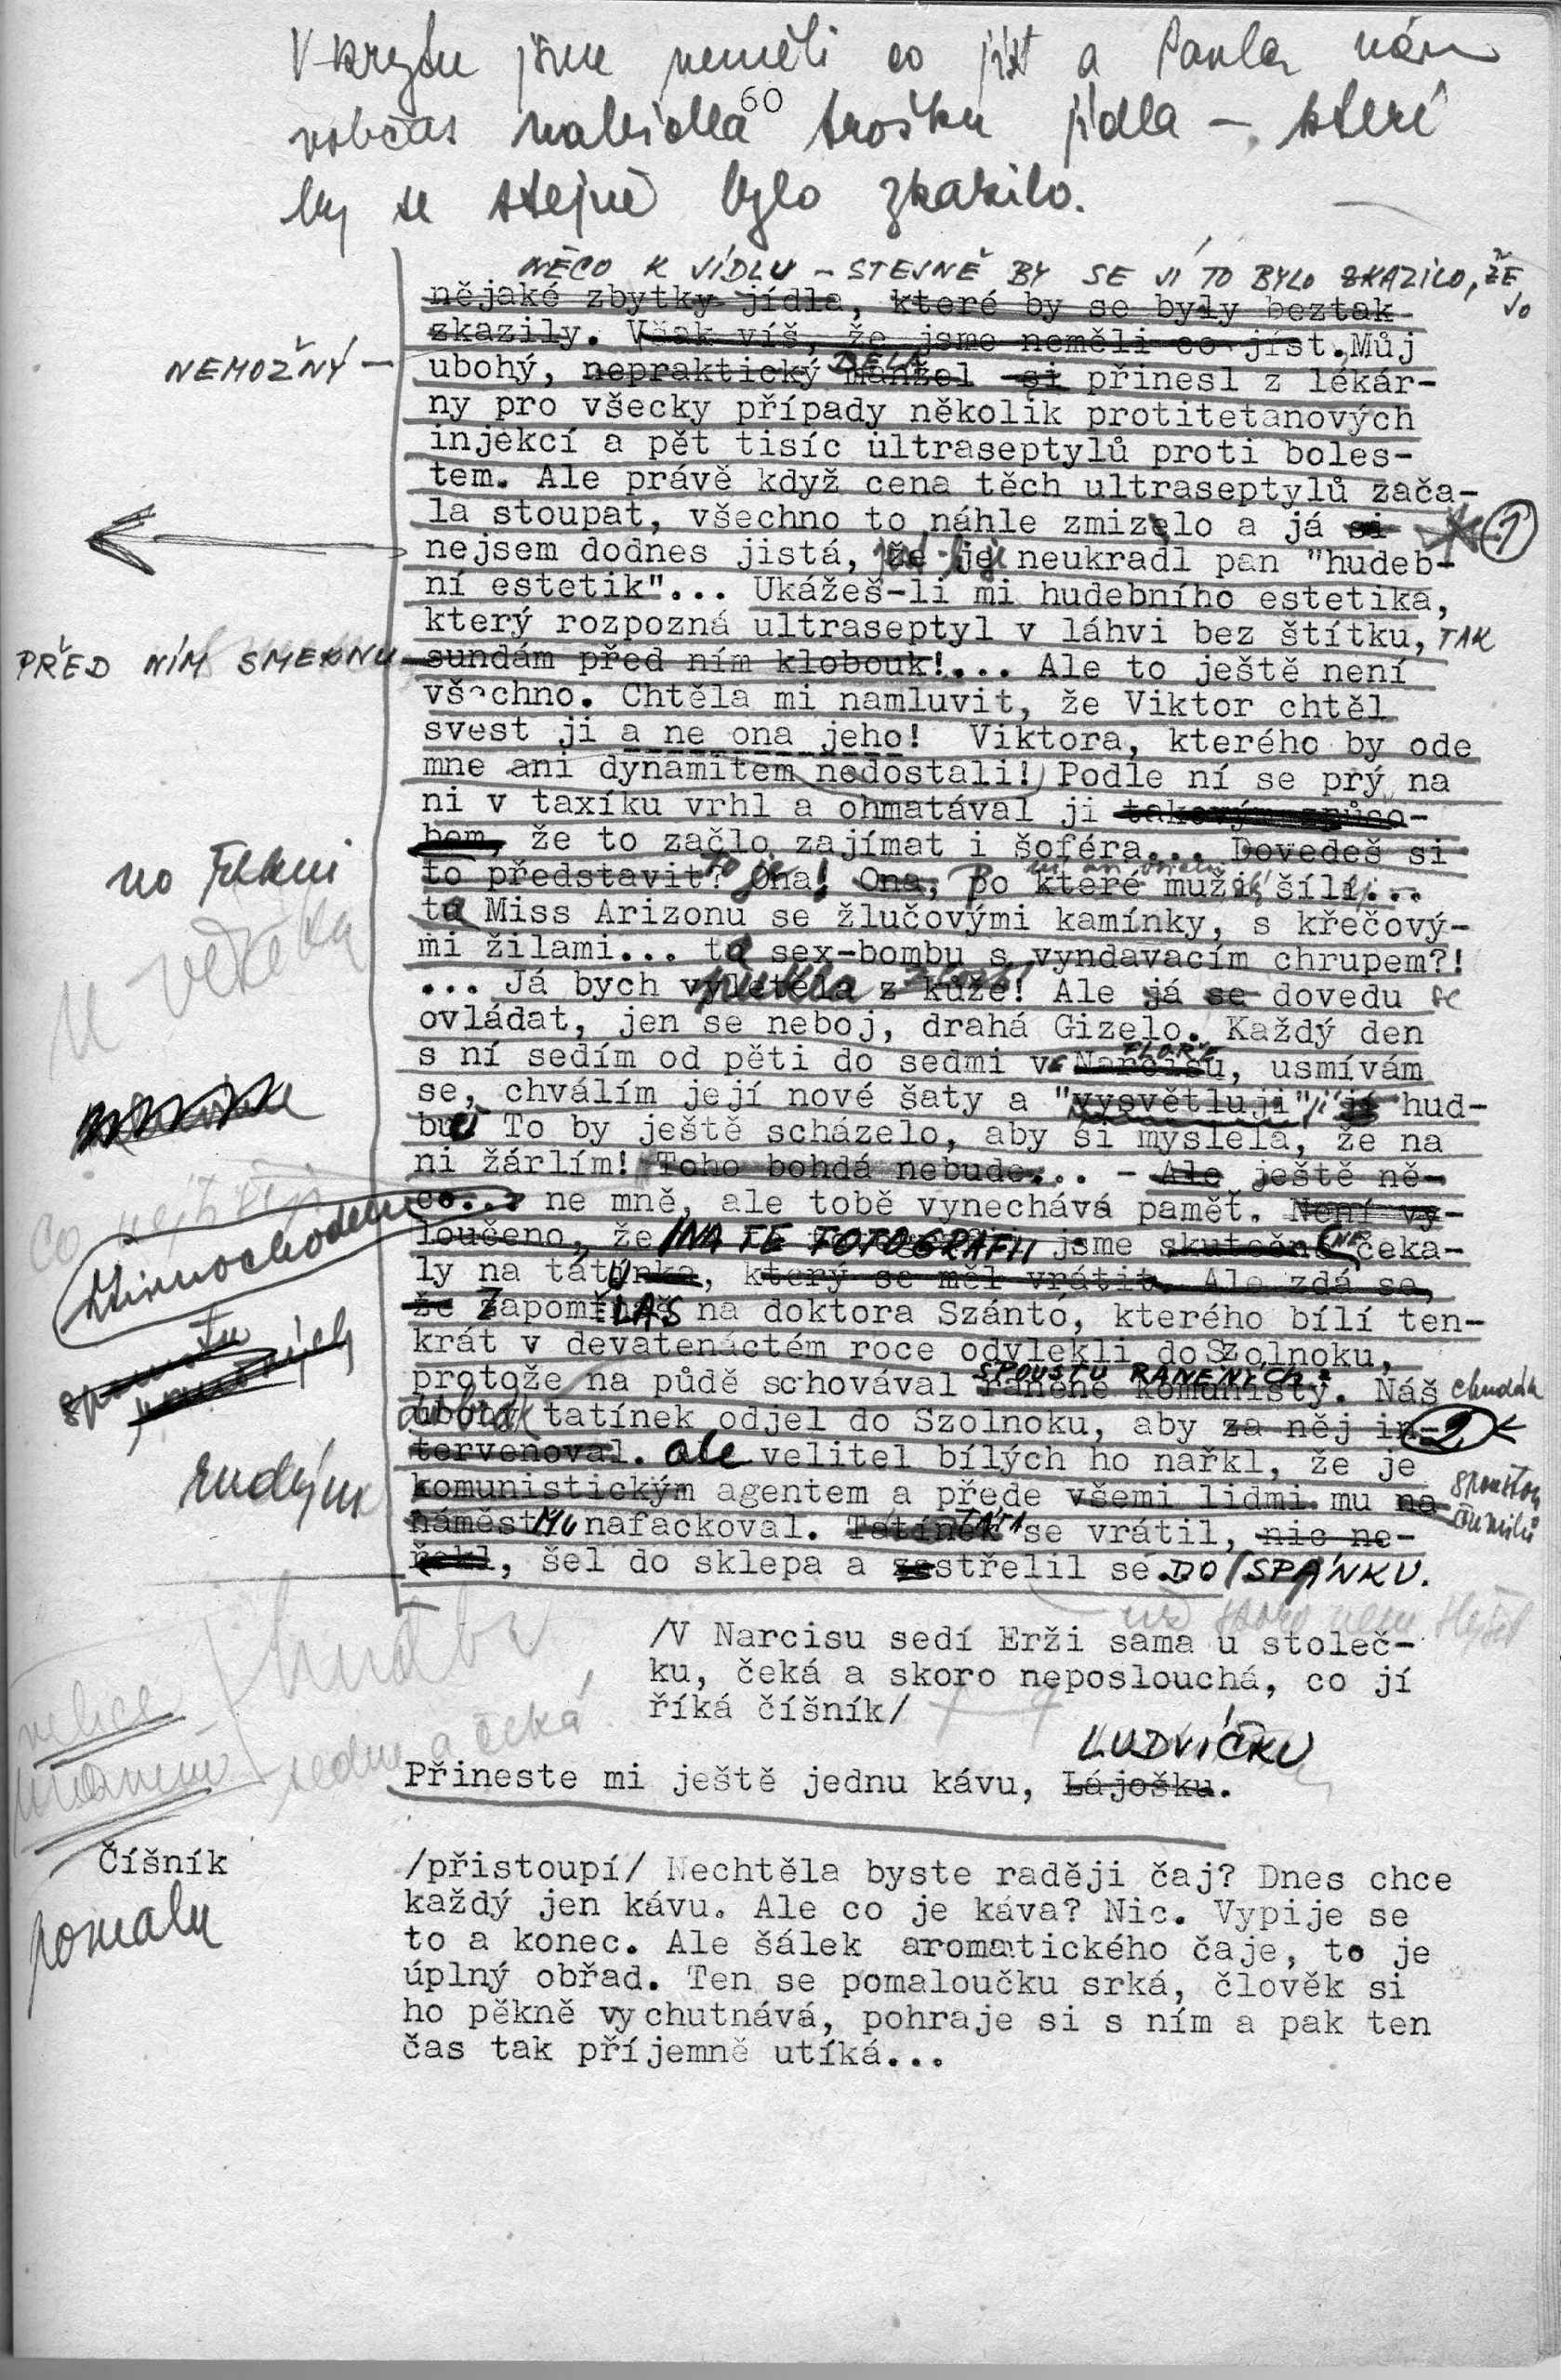 V krytu jsme neměli co jíst a Paula nám
60
občas nabídla trošku jídla — které
by se stejně bylo zkazilo.
NĚCO K JÍDLU – STEJNĚ BY SE JÍ TO BYLO ZKAZILO, ŽE JO
nějaké zbytky jídla, které by se byly beztak
zkazily. Však víš, že jsme neměli co jíst. Můj
NEMOŽNÝ —
BÉLA
ubohý, nepraktický manžel si přinesl z lékár-
ny pro všecky případy několik protitetanových
injekcí a pět tisíc ultraseptylů proti boles-
tem. Ale právě když cena těch ultraseptylů zača-
la stoupat, všechno to náhle zmizelo a já si
1
nejsem dodnes jistá, že je neukradl pan "hudeb-
ní estetik"... Ukážeš-li mi hudebního estetika,
který rozpozná ultraseptyl v láhvi bez štítku, TAK
PŘED NÍM SMEKNU
sundám před ním klobouk!... Ale to ještě není
všechno. Chtěla mi namluvit, že Viktor chtěl
svest ji a ne ona jeho! Viktora, kterého by ode
mne ani dynamitem nedostali! Podle ní se prý na
ni v taxíku vrhl a ohmatával ji takovým způso-
bem, že to začlo zajímat i šoféra... Dovedeš si
no řekni
to představit? To je Ona! Ona, po které muži šílí...
ta Miss Arizonu se žlučovými kamínky, s křečový-
mi žilami... ta sex-bombu s vyndavacím chrupem?!
pukla zlostí
... Já bych vyletěla z kůže! Ale já se dovedu se
ovládat, jen se neboj, drahá Gizelo. Každý den
FLÓŘE
s ní sedím od pěti do sedmi v Narcisu, usmívám
se, chválím její nové šaty a "vysvětluji" jí hud-
bu! To by ještě scházelo, aby si myslela, že na
ni žárlím! Toho bohdá nebude... - Ale ještě ně-
Mimochodem
co... ne mně, ale tobě vynechává paměť. Není vy-
loučeno, že NA TÉ FOTOGRAFII jsme skutečně NE čeka-
ly na tátu, který se měl vrátit. Ale zdá se,
že ZapomněLAS na doktora Szántó, kterého bílí ten-
krát v devatenáctém roce odvlekli do Szolnoku,
SPOUSTU RANĚNÝCH
protože na půdě schovával raněné komunisty. Náš chudák
ubohý tatínek odjel do Szolnoku, aby za něj in-
2
tervenoval. ale velitel bílých ho nařkl, že je
rudým
komunistickým agentem a přede všemi lidmi mu na
spoustou čumilů
náměstí MU nafackoval. Tatínek TÁTA se vrátil, nic ne-
řekl, šel do sklepa a zastřelil se. DO SPÁNKU.
hudba
už skoro není slyšet
/V Narcisu sedí Erži sama u stoleč-
ku, čeká a skoro neposlouchá, co jí
říká číšník/
sedne a čeká
velice
LUDVÍČKU
Přineste mi ještě jednu kávu, Lájošku.
Číšník
/přistoupí/ Nechtěla byste raději čaj? Dnes chce
pomalu
každý jen kávu. Ale co je káva? Nic. Vypije se
to a konec. Ale šálek aromatického čaje, to je
úplný obřad. Ten se pomaloučku srká, člověk si
ho pěkně vychutnává, pohraje si s ním a pak ten
čas tak příjemně utíká...